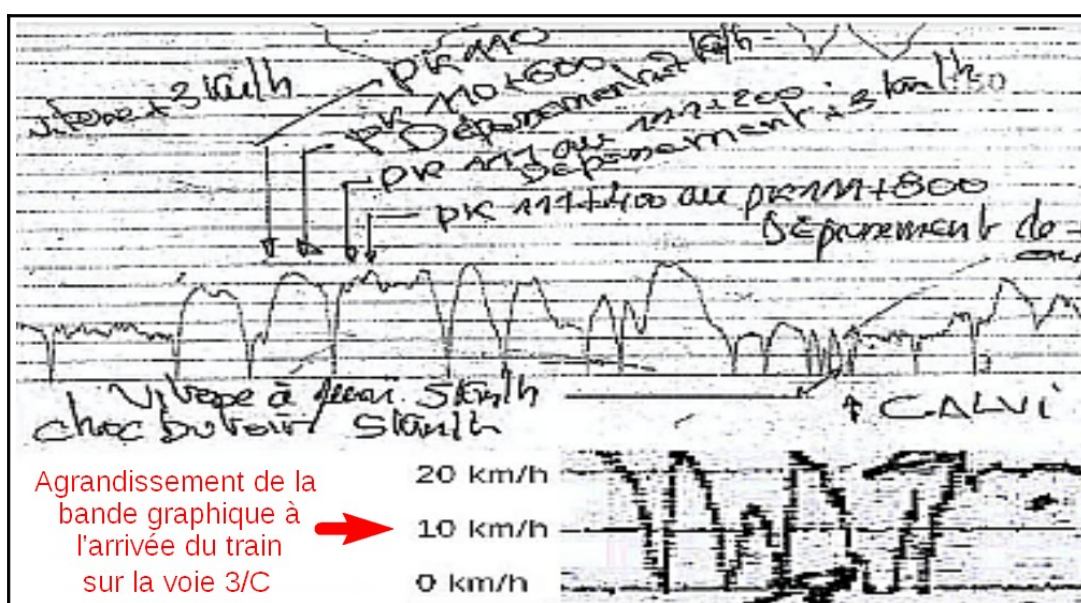 PK 110
vitesse + 3 km/h
PK 110 + 600
Dépassement km/h
PK 111 au 111 + 200
Dépassement + 3 km/h
PK 111 + 400 au PK 111 + 800
Dépassement de
Vitesse à 5km/h
choc butoir 5km/h
↑ CALVI
20 km/h
Agrandissement de la
bande graphique à
10 km/h
l'arrivée du train
sur la voie 3/C
0 km/h